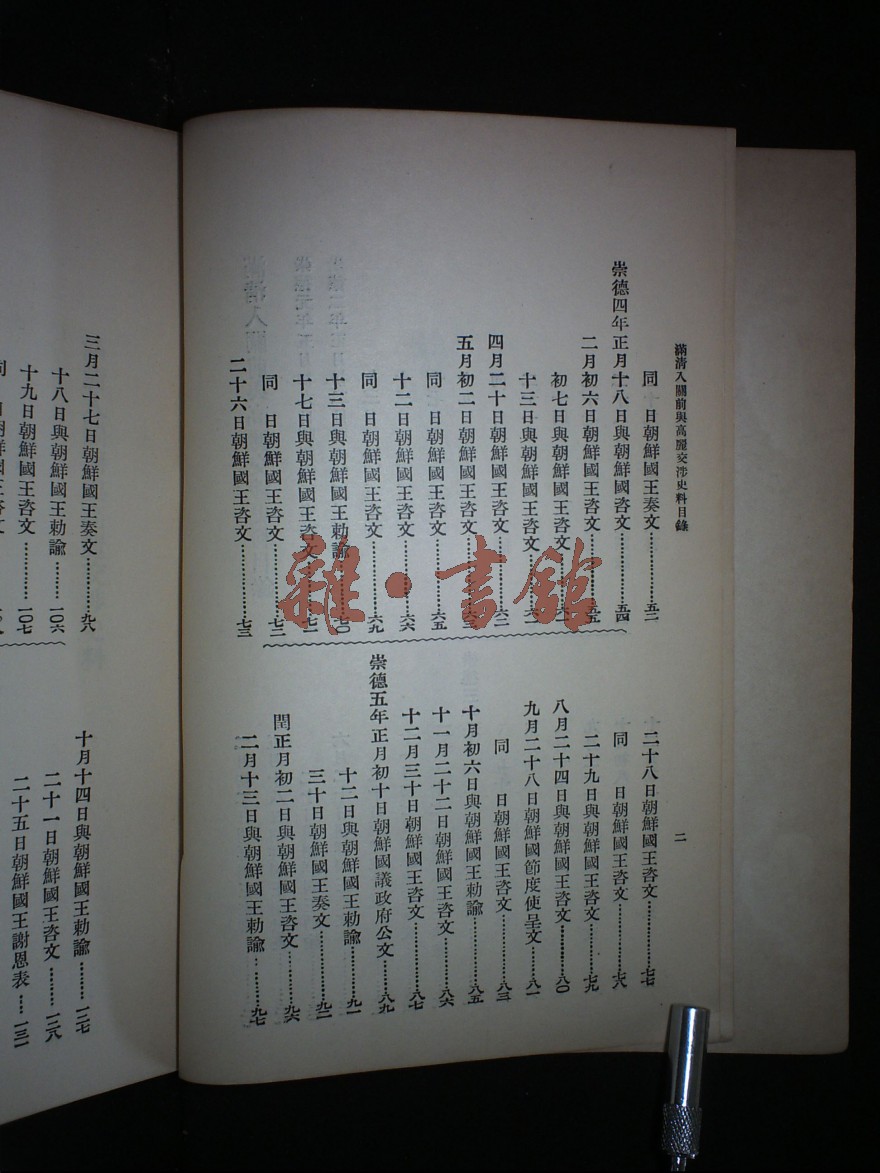 滿清入關前與高麗交涉史料目錄
同　日朝鮮國王奏文…………五二
崇德四年正月十八日與朝鮮國咨文…………五四
二月初六日朝鮮國王咨文…………五五
初七日與朝鮮國王咨文…………六一
十三日與朝鮮國王咨文…………六一
四月二十日朝鮮國王咨文…………六二
五月初二日朝鮮國王咨文…………六三
同　日朝鮮國王咨文…………六五
十二日朝鮮國王咨文…………六六
同　日朝鮮國王咨文…………六九
十三日與朝鮮國王勅諭…………七〇
十七日與朝鮮國王咨文…………七一
同　日朝鮮國王咨文…………七二
二十六日朝鮮國王咨文…………七三
二
二十八日朝鮮國王咨文…………七七
同　日朝鮮國王咨文…………七八
二十九日與朝鮮國王咨文…………七九
八月二十四日與朝鮮國王咨文…………八〇
九月二十八日朝鮮國節度使呈文…………八一
同　日朝鮮國王咨文…………八三
十月初六日與朝鮮國王勅諭…………八五
十一月二十二日朝鮮國王咨文…………八六
十二月三十日朝鮮國王咨文…………八七
崇德五年正月初十日朝鮮國議政府公文…………八九
十二日與朝鮮國王勅諭…………九一
三十日朝鮮國王奏文…………九二
閏正月初二日與朝鮮國王咨文…………九六
二月十三日與朝鮮國王勅諭…………九七
三月二十七日朝鮮國王奏文…………九八
十八日與朝鮮國王勅諭…………一〇六
十九日朝鮮國王咨文…………一〇七
十月十四日與朝鮮國王勅諭…………一三七
二十一日朝鮮國王咨文…………一三八
二十五日朝鮮國王謝恩表……一三一
雜·書館